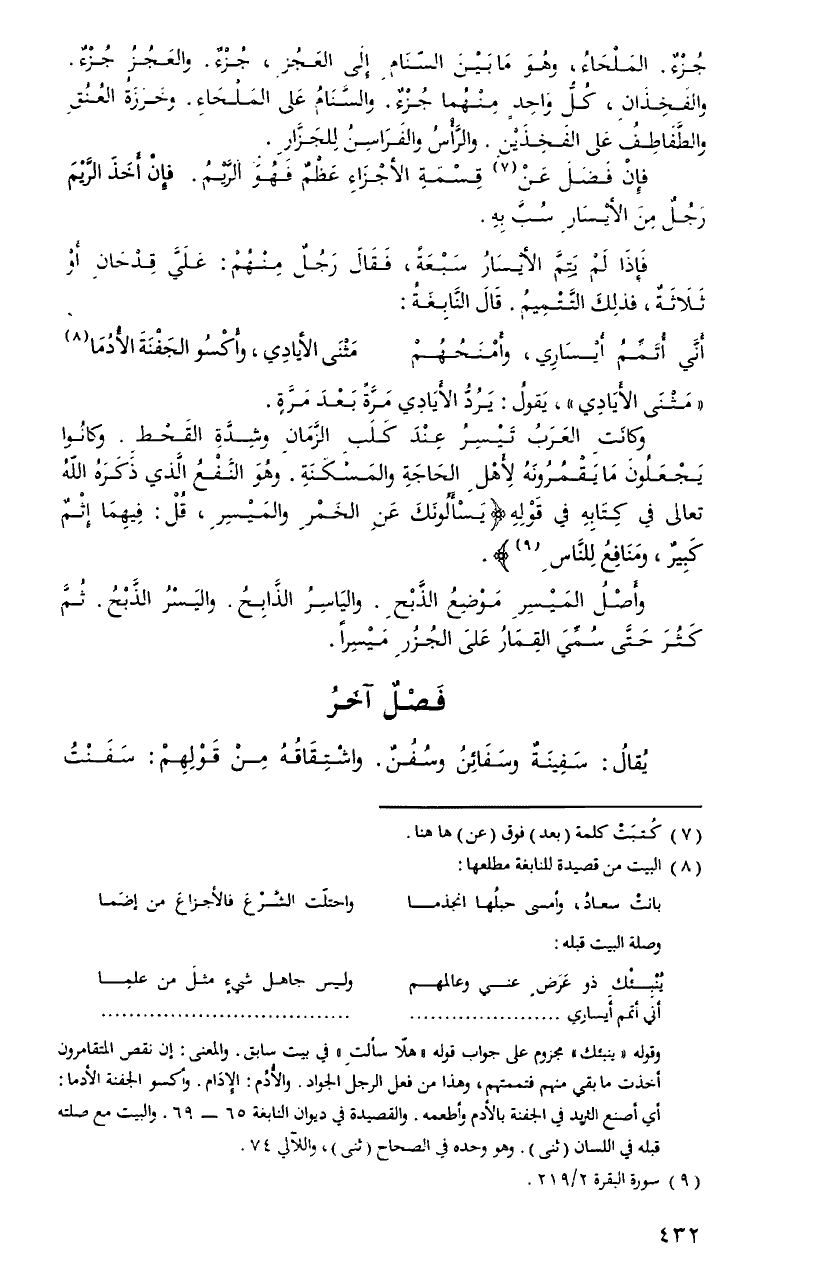 جُزْءٌ. المَلْحَاءُ، وهُوَ مَا بَيْنَ السَّنَامِ إِلَى العَجُزِ، جُزْءٌ. والعَجُزُ جُزْءٌ.
والفَخِذَانِ، كُلُّ وَاحِدٍ مِنْهُما جُزْءٌ. والسَّنَامُ عَلى المَلْحَاءِ. وخَرَزَةُ العُنُقِ
والطَّفَاطِفُ عَلى الفَخِذَيْنِ. والرَّأْسُ والفَرَاسِنُ لِلجَزَّارِ.
فَإِنْ فَضَلَ عَنْ(٧) قِسْمَةِ الأَجْزَاءِ عَظْمٌ فَهُوَ الرَّيْمُ. فإِنْ أَخَذَ الرَّيْمَ
رَجُلٌ مِنَ الأَيْسَارِ سُبَّ بِهِ.
فَإِذَا لَمْ يَتِمَّ الأَيْسَارُ سَبْعَةً، فَقَالَ رَجُلٌ مِنْهُمْ: عَلَيَّ قِدْحَانِ أَوْ
ثَلَاثَةٌ، فذلِكَ التَّتْمِيمُ. قَالَ النَّابِغَةُ:
أَنَّي أُتَمِّمُ أَيْسَارِي، وأَمْنَحُهُمْ مَثْنَى الأَيادِي، وأَكْسُو الجَفْنَةَ الأُدُمَا(٨)
«مَثْنَى الأَيَادِي»، يَقولُ: يَرُدُّ الأَيَادِي مَرَّةً بَعْدَ مَرَّةٍ.
وكَانَتِ العَرَبُ تَيْسِرُ عِنْدَ كَلَبِ الزَّمَانِ وشِدَّةِ القَحْطِ. وكَانُوا
يَجْعَلُونَ مَا يَقْمُرُونَهُ لِأَهْلِ الحَاجَةِ والمَسْكَنَةِ. وهُوَ النَّفْعُ الَّذي ذَكَرَهُ اللهُ
تعالى في كِتَابِهِ في قَوْلِهِ ﴿يَسْأَلُونَكَ عَنِ الخَمْرِ والمَيْسِرِ، قُلْ: فِيهِمَا إِثْمٌ
كَبِيرٌ، ومَنَافِعُ لِلنَّاسِ(٩)﴾.
وأَصْلُ المَيْسِرِ مَوْضِعُ الذَّبْحِ. واليَاسِرُ الذَّابِحُ. واليَسْرُ الذَّبْحُ. ثُمَّ
كَثُرَ حَتَّى سُمِّيَ القِمَارُ عَلَى الجُزُرِ مَيْسِراً.
فَصْلٌ آخَرُ
يُقَالُ: سَفِينَةٌ وسَفَائِنُ وسُفُنٌ. واشْتِقَاقُهُ مِنْ قَوْلِهِمْ: سَفَنْتُ
(٧) كُتبَتْ كلمة (بعد) فوق (عن) ها هنا.
(٨) البيت من قصيدة للنابغة مطلعها:
بانتْ سعادُ، وأمسى حبلُها انجذما واحتلّت الشَّرْعَ فالأجزاعَ من إضَما
وصلة البيت قبله:
يُنْبِئْك ذو عَرَضٍ عني وعالمهم وليس جاهل شيءٍ مثلَ من علما
أني أتمم أيساري .................... ..................................
وقوله «ينبئك» مجزوم على جواب قوله «هلّا سألتِ» في بيت سابق. والمعنى: إن نقص المتقامرون
أخذت ما بقي منهم فتممتهم، وهذا من فعل الرجل الجواد. والأُدُم: الإدَام. وأكسو الجفنة الأدما:
أي أصنع الثريد في الجفنة بالأدم وأطعمه. والقصيدة في ديوان النابغة ٦٥ ــ ٦٩. والبيت مع صلته
قبله في اللسان (ثنى). وهو وحده في الصحاح (ثنى)، واللآلي ٧٤.
(٩) سورة البقرة ٢١٩/٢.
٤٣٢